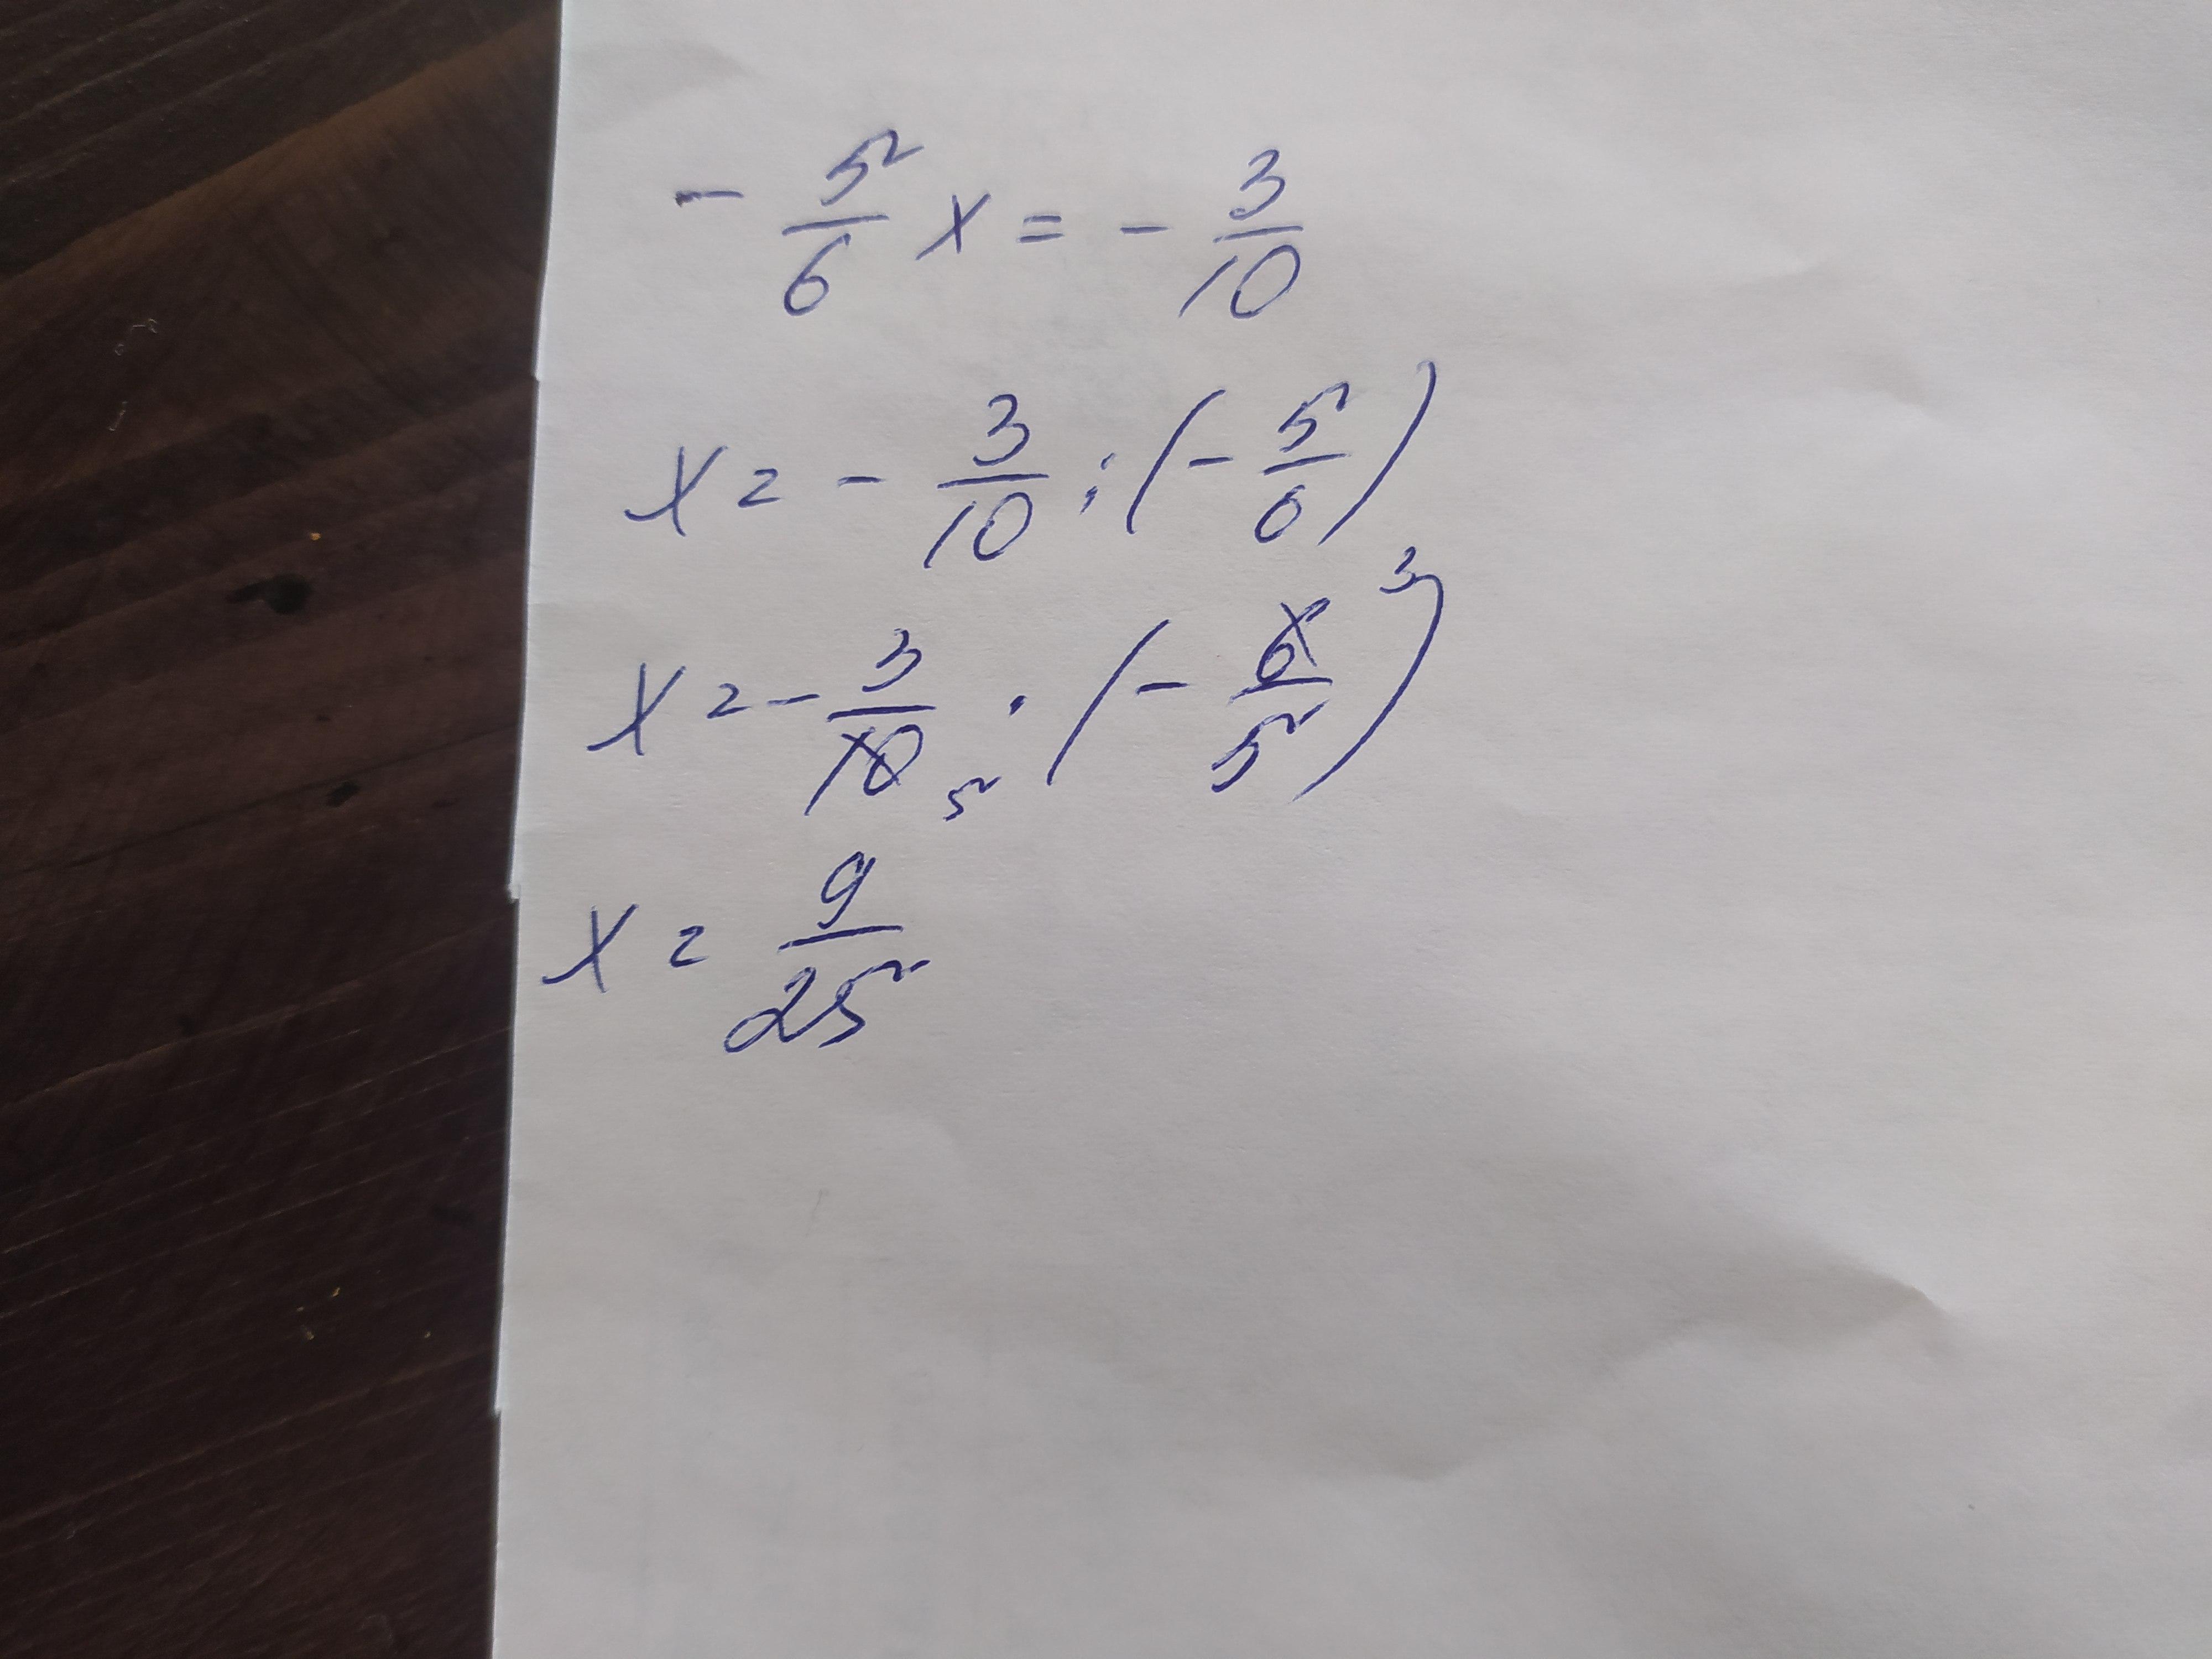 - 5/6 x = - 3/10
x = - 3/10 : (- 5/6)
x = - 3/10 5 · (- 6/5) 3
x = 9/25